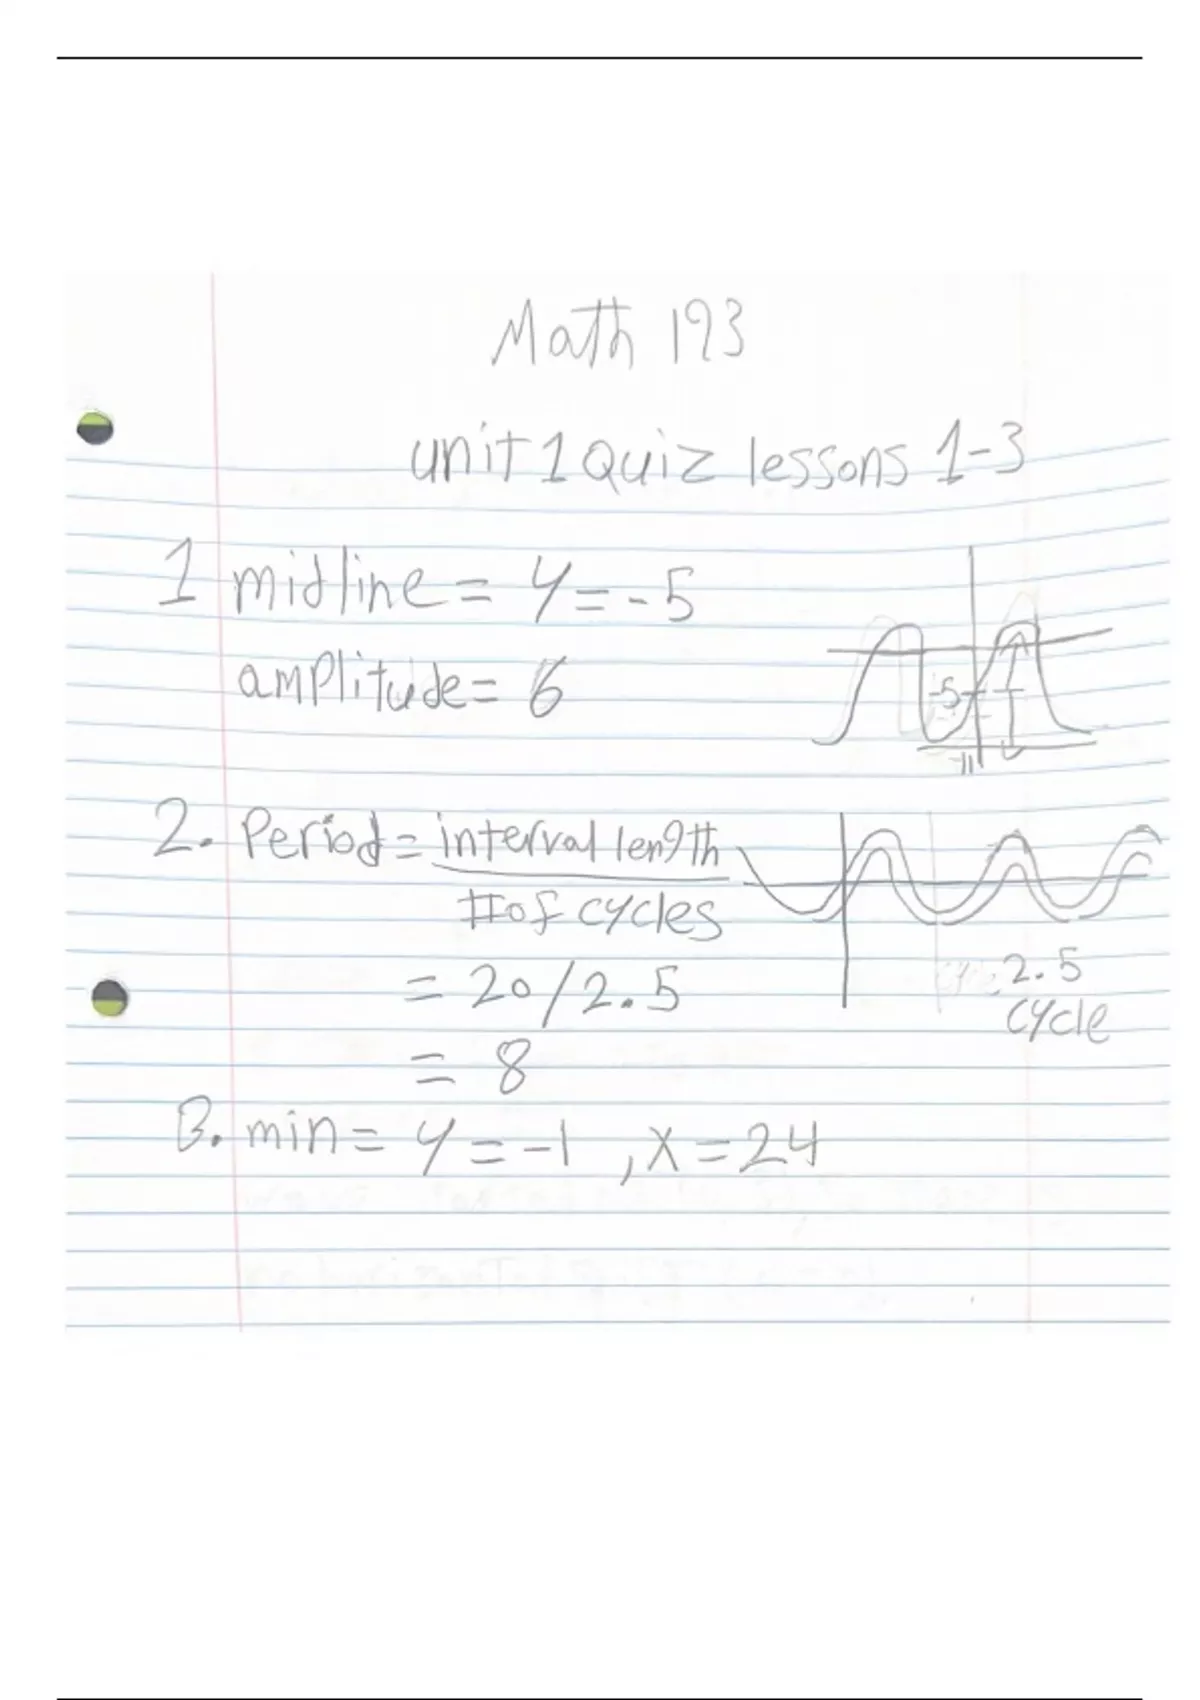 Math 193
unit 1 Quiz lessons 1-3
1 midline = y = -5
amplitude = 6
-5
-11
2. Period = interval length
# of cycles
= 20/2.5
= 8
2.5
cycle
3. min = y = -1, x = 24